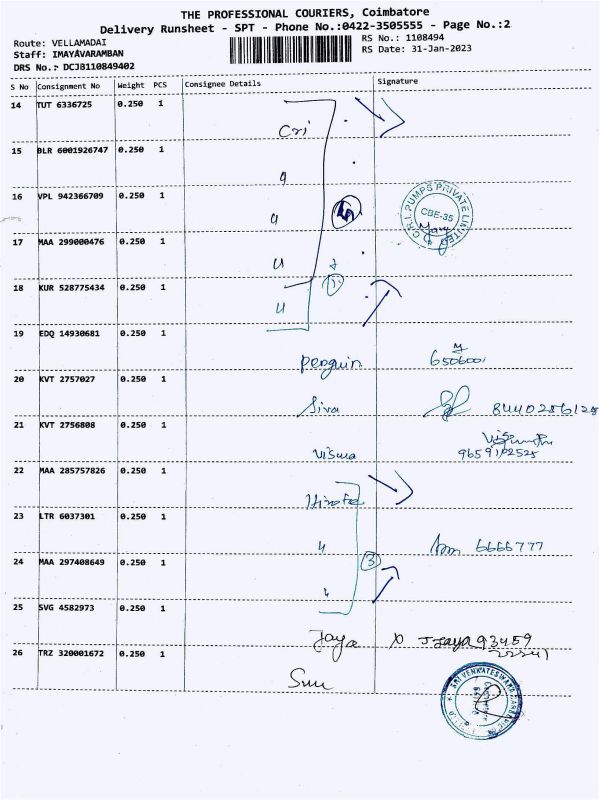 THE PROFESSIONAL COURIERS, Coimbatore
Delivery Runsheet - SPT - Phone No.:0422-3505555 - Page No.:2
Route: VELLAMADAI
RS No.: 1108494
Staff: IMAYAVARAMBAN
RS Date: 31-Jan-2023
DRS No.: DCJB110849402
S No Consignment No Weight PCS Consignee Details Signature
14 TUT 6336725 0.250 1 Cri
15 BLR 6001926747 0.250 1 "
16 VPL 942366709 0.250 1 "
C.R.I. PUMPS PRIVATE LIMITED
CBE-35
17 MAA 299000476 0.250 1 "
18 KUR 528775434 0.250 1 "
19 EDQ 14930681 0.250 1 Penguin
20 KVT 2757027 0.250 1 Siva
21 KVT 2756808 0.250 1 Visma
22 MAA 285757826 0.250 1
23 LTR 6037301 0.250 1 " 6666777
24 MAA 297408649 0.250 1 "
3
25 SVG 4582973 0.250 1 Jaya J.Jaya 93459
26 TRZ 320001672 0.250 1